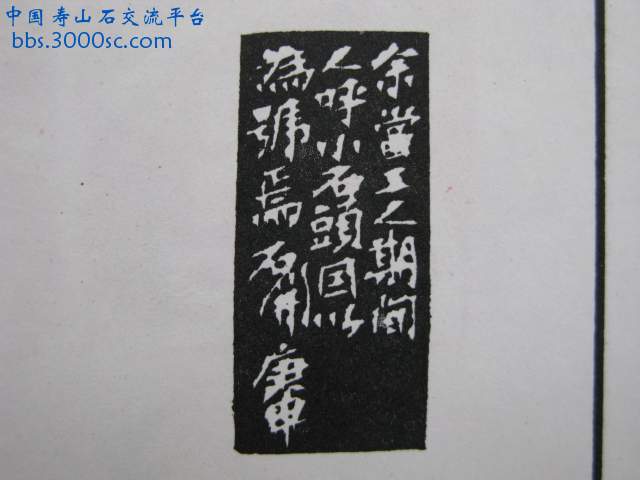 中国寿山石交流平台
bbs.3000sc.com
余當工人期間
人呼小石頭因以
為號焉石開庚申